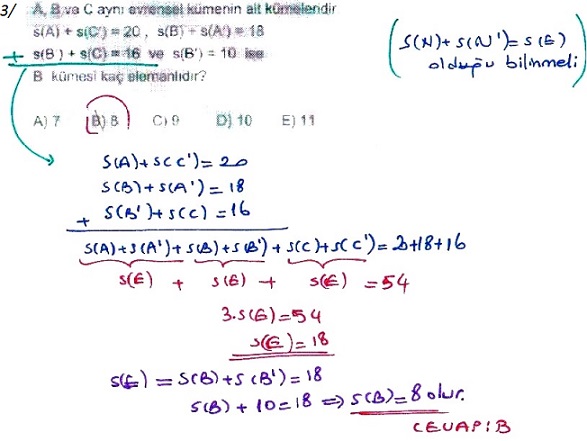 3/ A, B ve C aynı evrensel kümenin alt kümeleridir
s(A) + s(C') = 20 , s(B) + s(A') = 18
+ s(B') + s(C) = 16 ve s(B') = 10 ise
B kümesi kaç elemanlıdır?
A) 7 B) 8 C) 9 D) 10 E) 11
(s(N)+s(N')=s(E)
olduğu bilinmeli)
s(A)+s(C')=20
s(B)+s(A')=18
+ s(B')+s(C)=16
s(A)+s(A')+s(B)+s(B')+s(C)+s(C')=20+18+16
s(E) + s(E) + s(E) =54
3.s(E)=54
s(E)=18
s(E)=s(B)+s(B')=18
s(B)+10=18 ⇒ s(B)=8 olur.
CEVAP:B